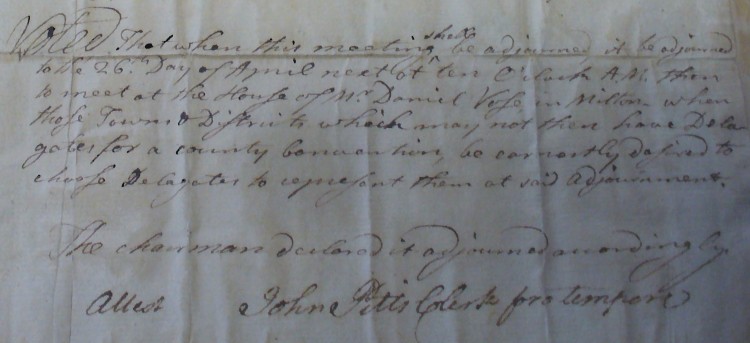 Voted. That when this meeting shall be adjourned it be adjourned
to the 26.th Day of April next at ten O'Clock A.M. then
to meet at the House of Mr. Daniel Vose in Milton when
those Towns & Districts which may not then have Dela
gates for a county convention, be earnestly desired to
choose Delagates to represent them at said Adjournment.
The chairman declared it adjourned accordingly
Attest John Pitts Clerk pro tempore